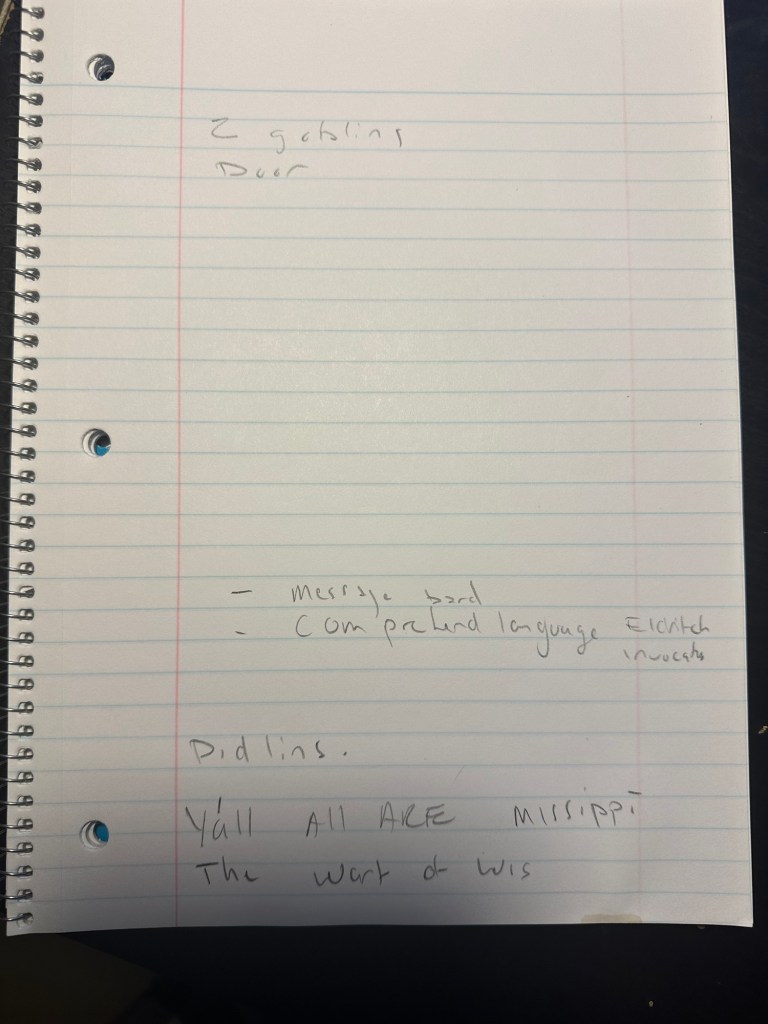 2 goblins
Door
- message bard
- Comprehend language Eldritch
invocatn
Didlins.
Y'all All ARE Missippi
The Wart of Wis